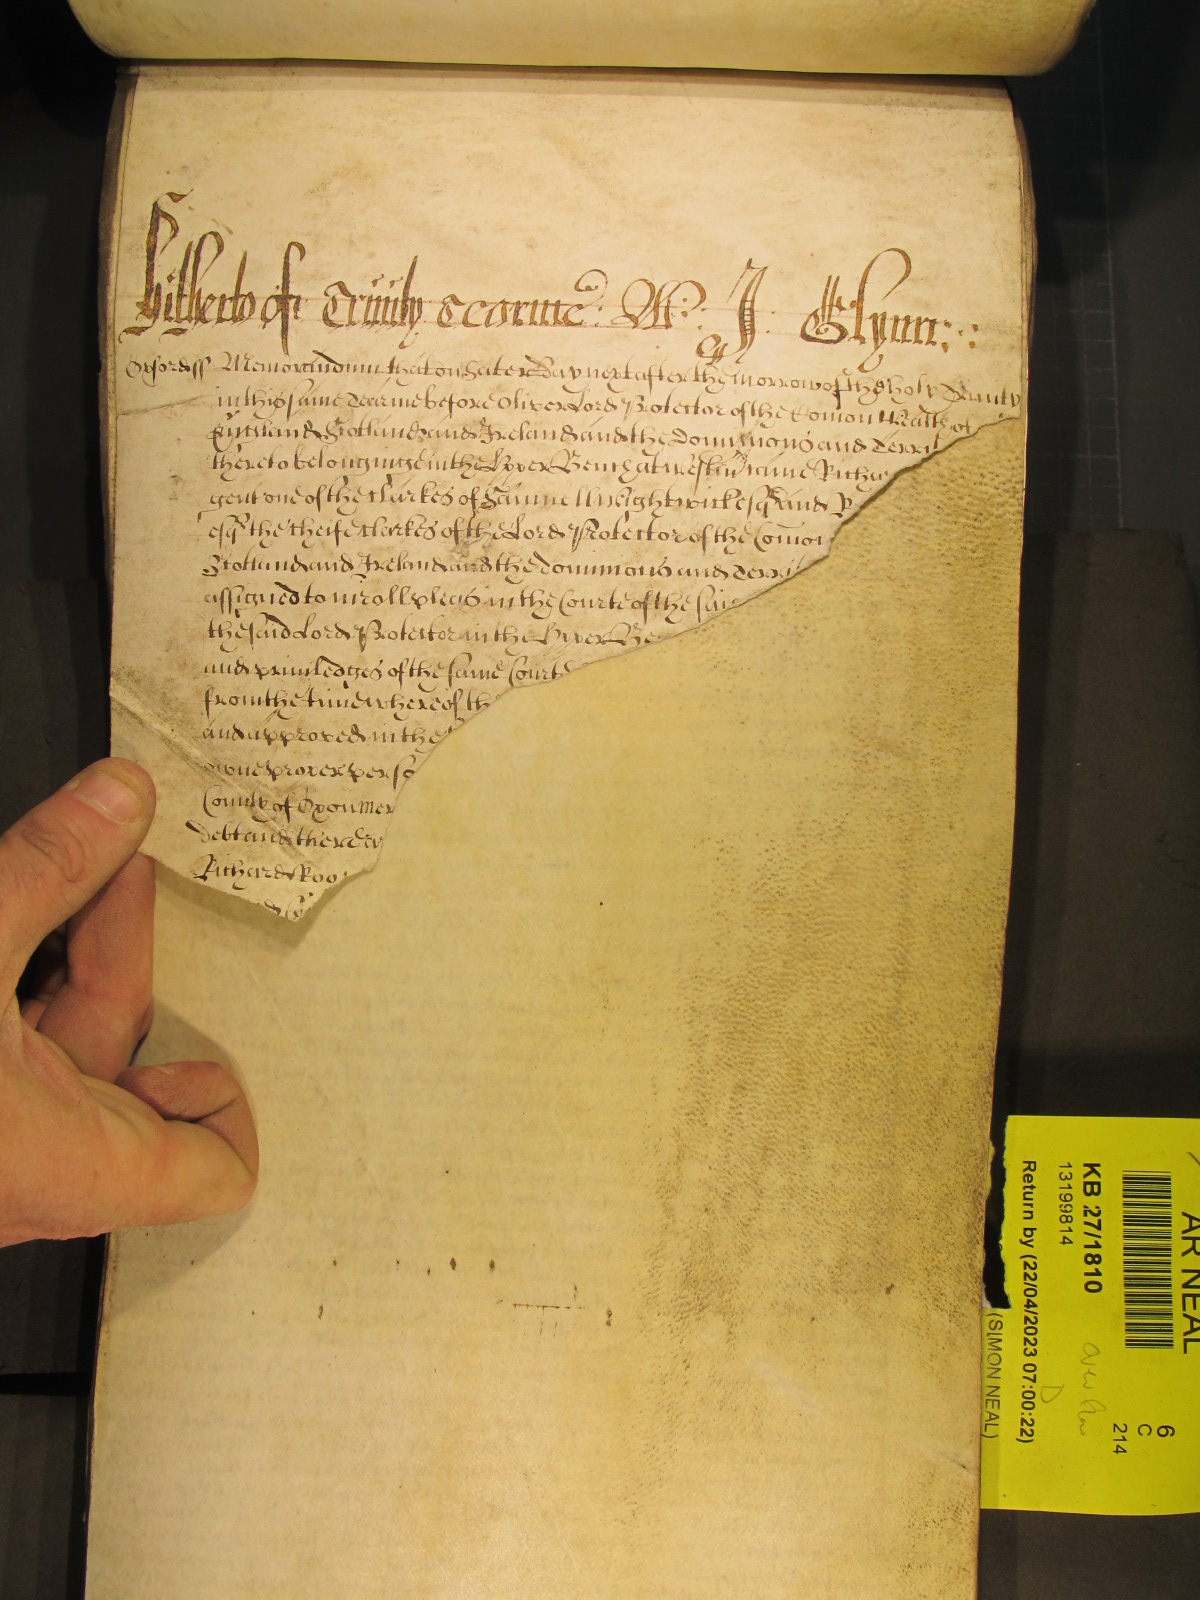 Hitherto of Trinity Tearme W: J Glynn:
Oxford ss Memorandum that on Saterday next after the morrow of the holy Trinity
in this same Tearme before Oliver Lord Protector of the Comon Wealth of
England Scotland and Ireland and the Dominions and Territ
thereto belonginge in the Upper Bench at Westminr came Richar
gent one of the Clarkes of Samuell Wightwicke esqr and R
esqr the cheife Clarkes of the Lord Protector of the Comon
Scotland and Ireland and the Dominions and Terri
assigned to inroll pleas in the Courte of the sai
the said Lord Protector in the Upper Be
and priviledges of the same Courte
from the time whereof th
and approved in the
owne proper perso
County of Oxon mer
debt and thereu
Richard Roo
AR NEAL
6
C
214
KB 27/1810
13199814
Return by (22/04/2023 07:00:22)
(SIMON NEAL)